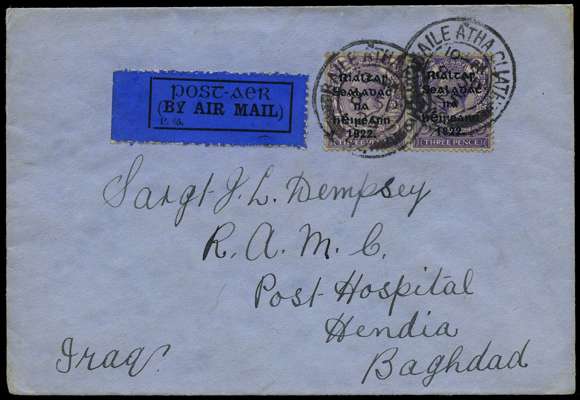 POST-AER
(BY AIR MAIL)
P. 63.
Rialtar
Sealadaċ
na
hÉireann
1922.
THREE PENCE
Rialtar
Sealadaċ
na
hÉireann
1922.
THREE PENCE
BAILE ATHA CLIATH
BAILE ATHA CLIATH
Sargt J. L. Dempsey
R. A. M. C.
Post Hospital
Hendia
Baghdad
Iraq.